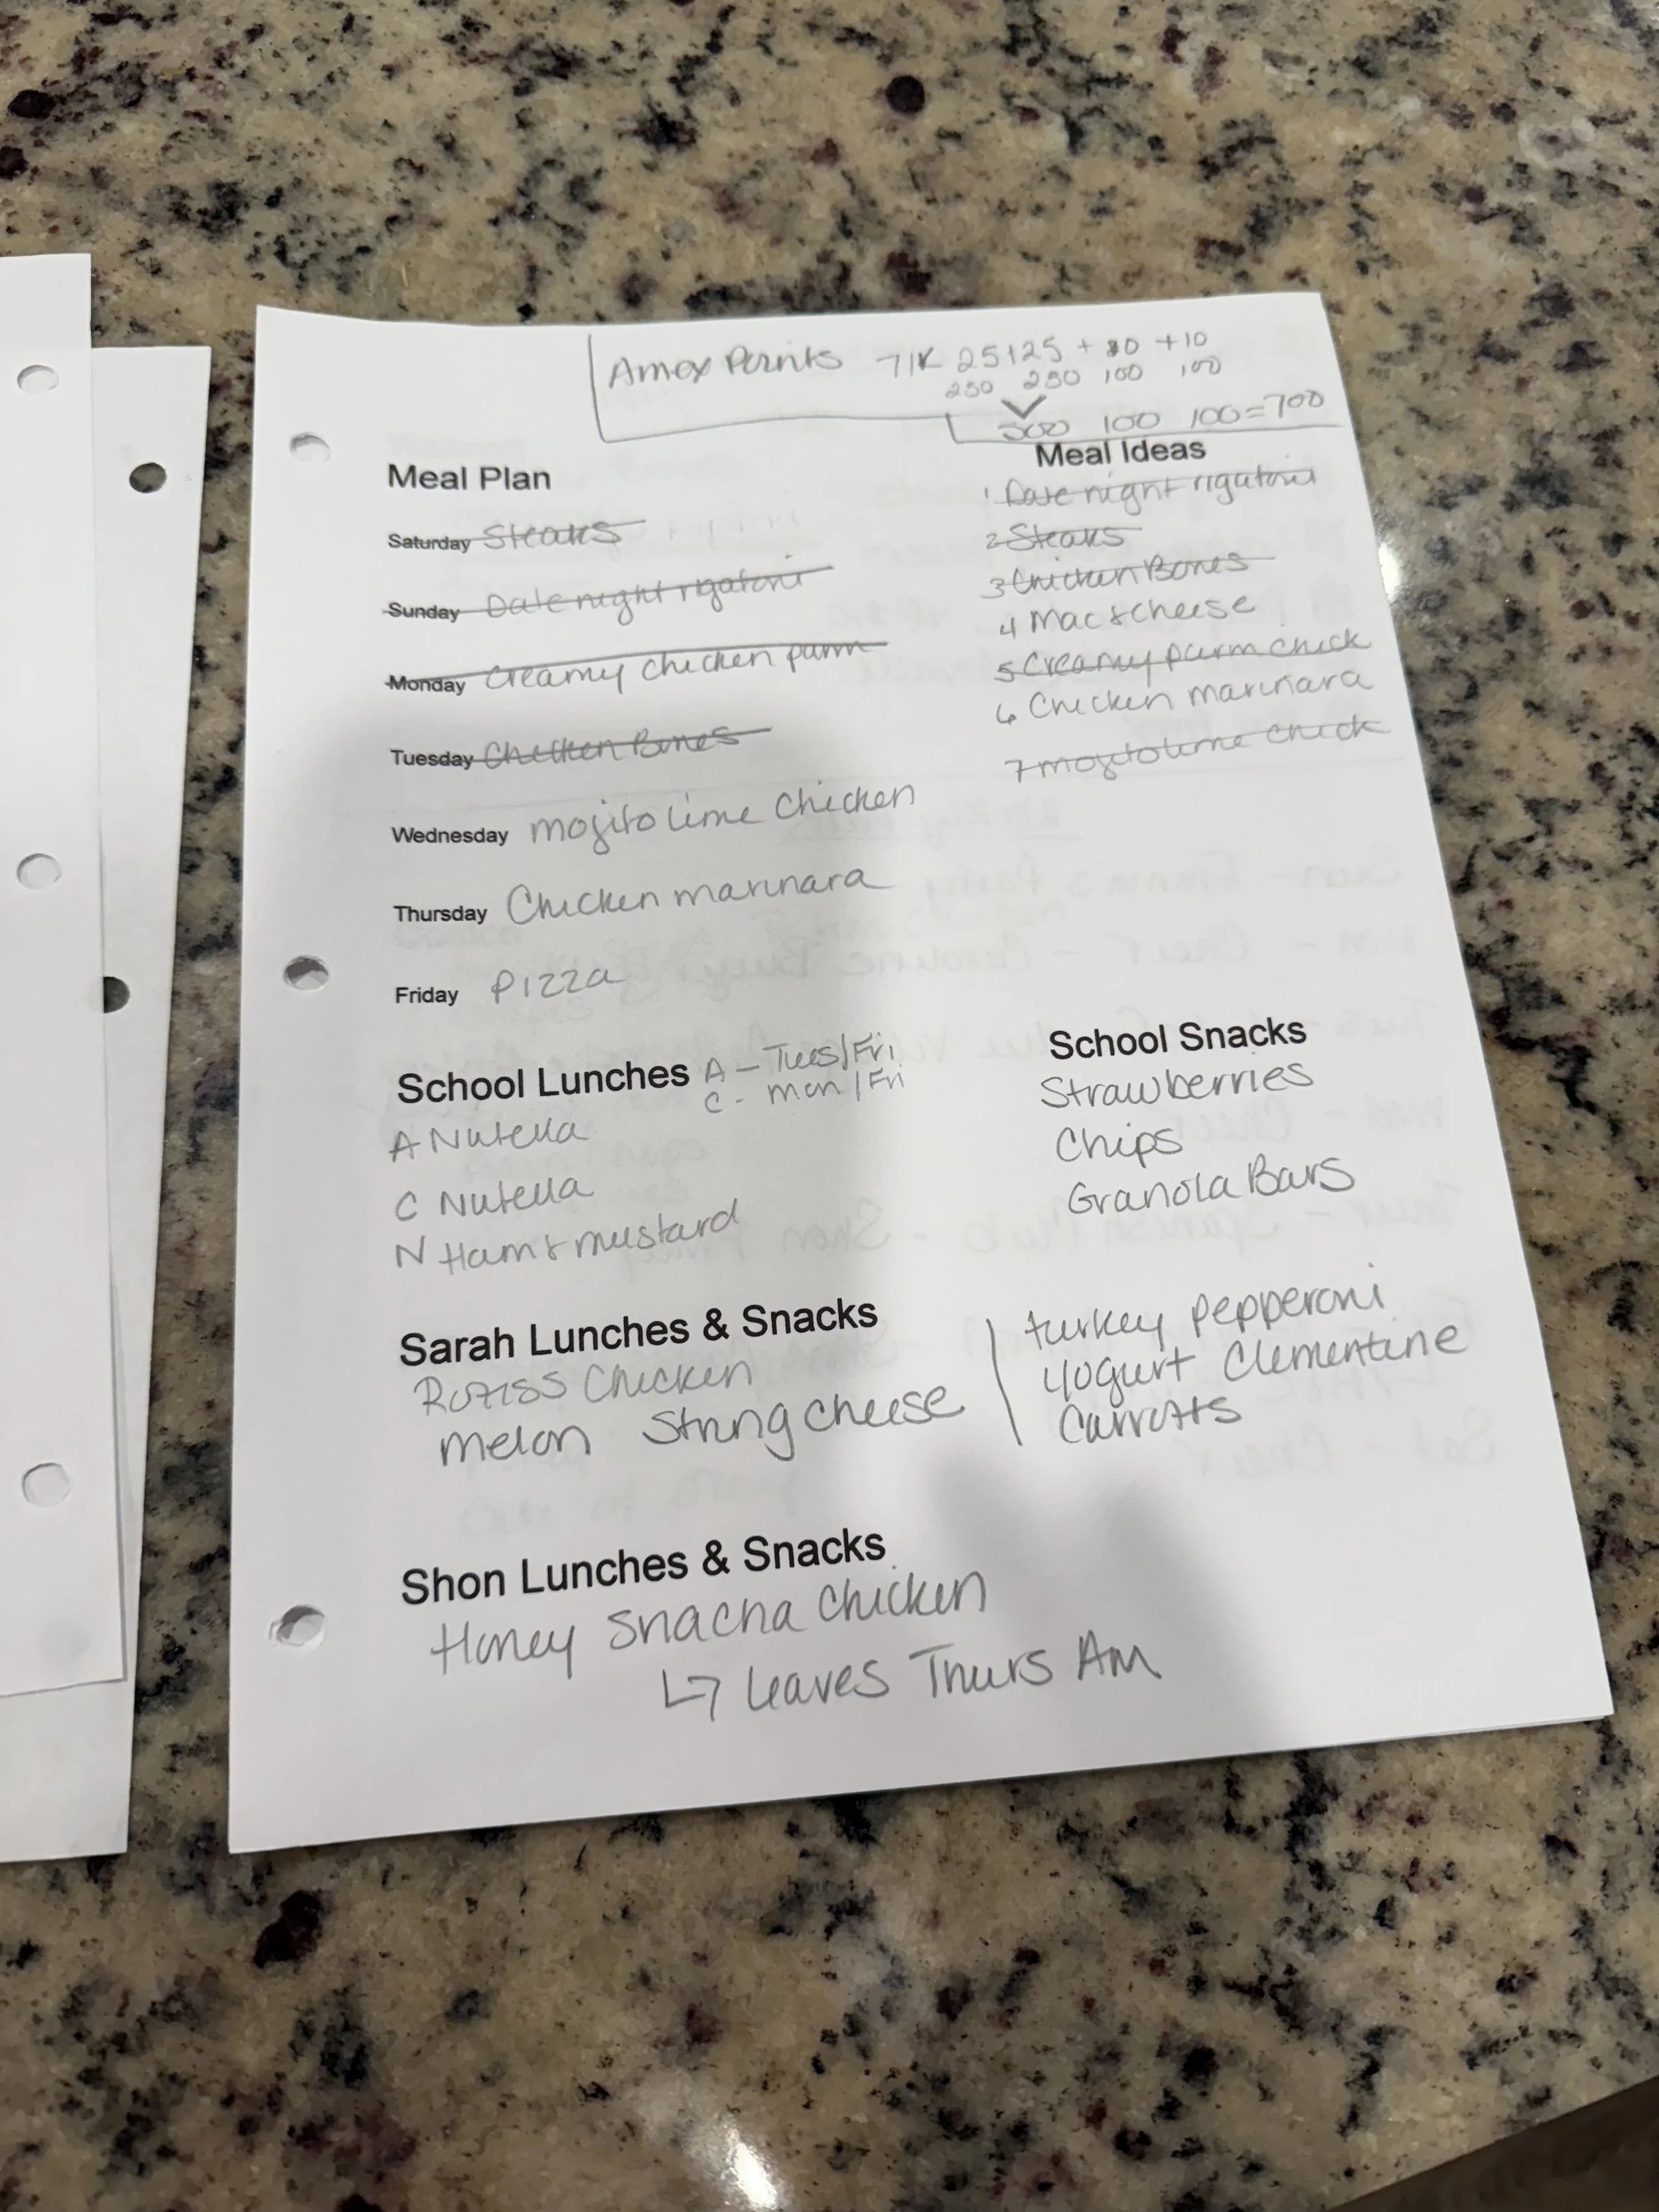 Amex Points 71K 25+25 + 10 +10
250 250 100 100
500 100 100=700
Meal Plan
Saturday Steaks
Sunday Date night rigatoni
Monday Creamy chicken parm
Tuesday Chicken Bones
Wednesday mojito lime Chicken
Thursday Chicken marinara
Friday Pizza
Meal Ideas
1 Date night rigatoni
2 Steaks
3 Chicken Bones
4 Mac & cheese
5 Creamy parm chick
6 Chicken marinara
7 mojito lime chick
School Lunches A - Tues/Fri
C - Mon/Fri
A Nutella
C Nutella
N Ham & mustard
School Snacks
Strawberries
Chips
Granola Bars
Sarah Lunches & Snacks
Rotiss Chicken
Melon String cheese
turkey pepperoni
Yogurt Clementine
Carrots
Shon Lunches & Snacks
Honey Sriacha Chicken
↳ leaves Thurs AM